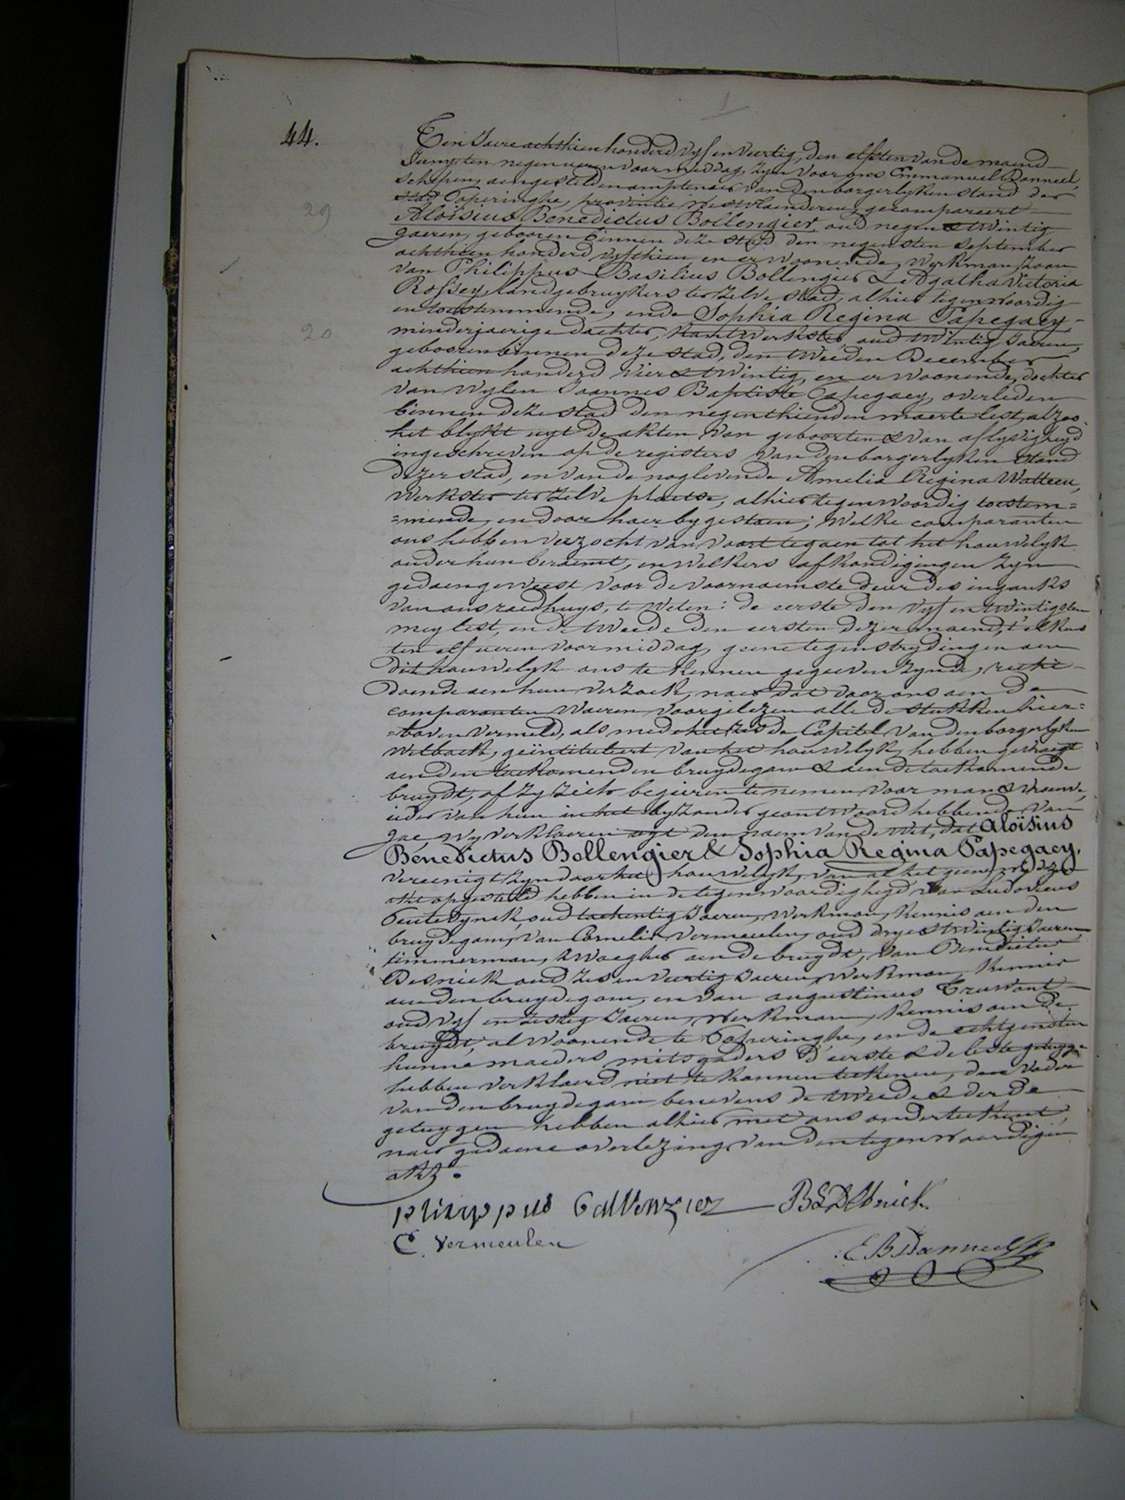 44.
Ten Jaere achthien honderd vyf en veertig, den elfsten van de maend
Juny, ten negen ueren voormiddag, zyn voor ons Emmanuel Danneel,
schepen, aengestelden amptenaer van den borgerlyken stand der
stad Poperinghe, provintie westvlaenderen, gecompareert
29
Aloisius Benedictus Bollengier oud negen & twintig
jaeren, gebooren binnen deze stad den negensten september
achthien honderd vyfthien en er woonende, werkman, zoon
van Philippus Basilius Bollengier & Agatha Victoria
Rossey, landgebruykers ter zelve stad, alhier tegenwoordig
en toestemmende, ende Sophia Regina Papegaey
20
minderjaerige dochter, kantwerkster oud twintig Jaeren,
gebooren binnen deze stad, den tweeden December
achthien honderd vier & twintig, en er woonende, dochter
van wylen Joannes Baptiste Papegaey, overleden
binnen deze stad den negenthienden maerte lest, alzoo
het blykt uyt de akten van geboorten & van aflyvigheyd
ingeschreven op de registers van den borgerlyken stand
dezer stad, en van de noglevende Amelia Regina Watteeu,
werkster ter zelve plaetse, alhier tegenwoordig toestem=
=mende, en door haer bygestaen; welke comparanten
ons hebben verzocht van voort te gaen tot het houwelyk
onder hun beraemt, en welkers afkondigingen zyn
gedaen geweest voor de voornaemste deur des ingangs
van ons raedhuys, te weten: de eerste den vyf en twintigsten
mey lest, en de tweede den eersten dezer maend, telkens
ten elf ueren voormiddag, geene tegenstrydingen aen
dit houwelyk ons te kennen gegeven zynde, recht
doende aen hun verzoek, naer dat door ons aen de
comparanten waeren voorgelezen alle de stukken hier=
=boven vermeld, als mede het zesde Capitel van den borgerlyken
wetboek, geïntituleert van het houwelyk, hebben gevraegt
aen den toekomenden bruydegom & aen de toekomende
bruydt, of zy zich begeeren te nemen voor man & vrouw,
ieder van hun in het byzonder geantwoord hebbende van
jae, wy verklaeren uyt den naem van de wet, dat Aloïsius
Benedictus Bollengier & Sophia Regina Papegaey,
vereenigt zyn door het houwelyk, van al het geene wy deze
akt opgesteld hebben in de tegenwoordigheyd van Ludovicus
oud tachentig Jaeren, werkman, kennis aen den
bruydegom, van Cornelis Vermeulen, oud drye & twintig Jaeren
timmerman, zwaeger aen de bruydt, van Benedictus
Desnick oud zes en veertig Jaeren, werkman, kennis
aen den bruydegom, en van augustinus Truwant
oud vyf en zestig Jaeren, werkman, kennis aen de
bruydt, al woonende te Poperinghe, en de echtgenoten
hunne moeders, mitsgaders d'eerste & de leste getuyge
hebben verklaerd niet te konnen teekenen, den vader
van den bruydegom benevens de tweede & derde
getuygen hebben alhier met ons onderteekent,
naer gedaene overlezing van den tegenwoordigen
akt.
C. Vermeulen